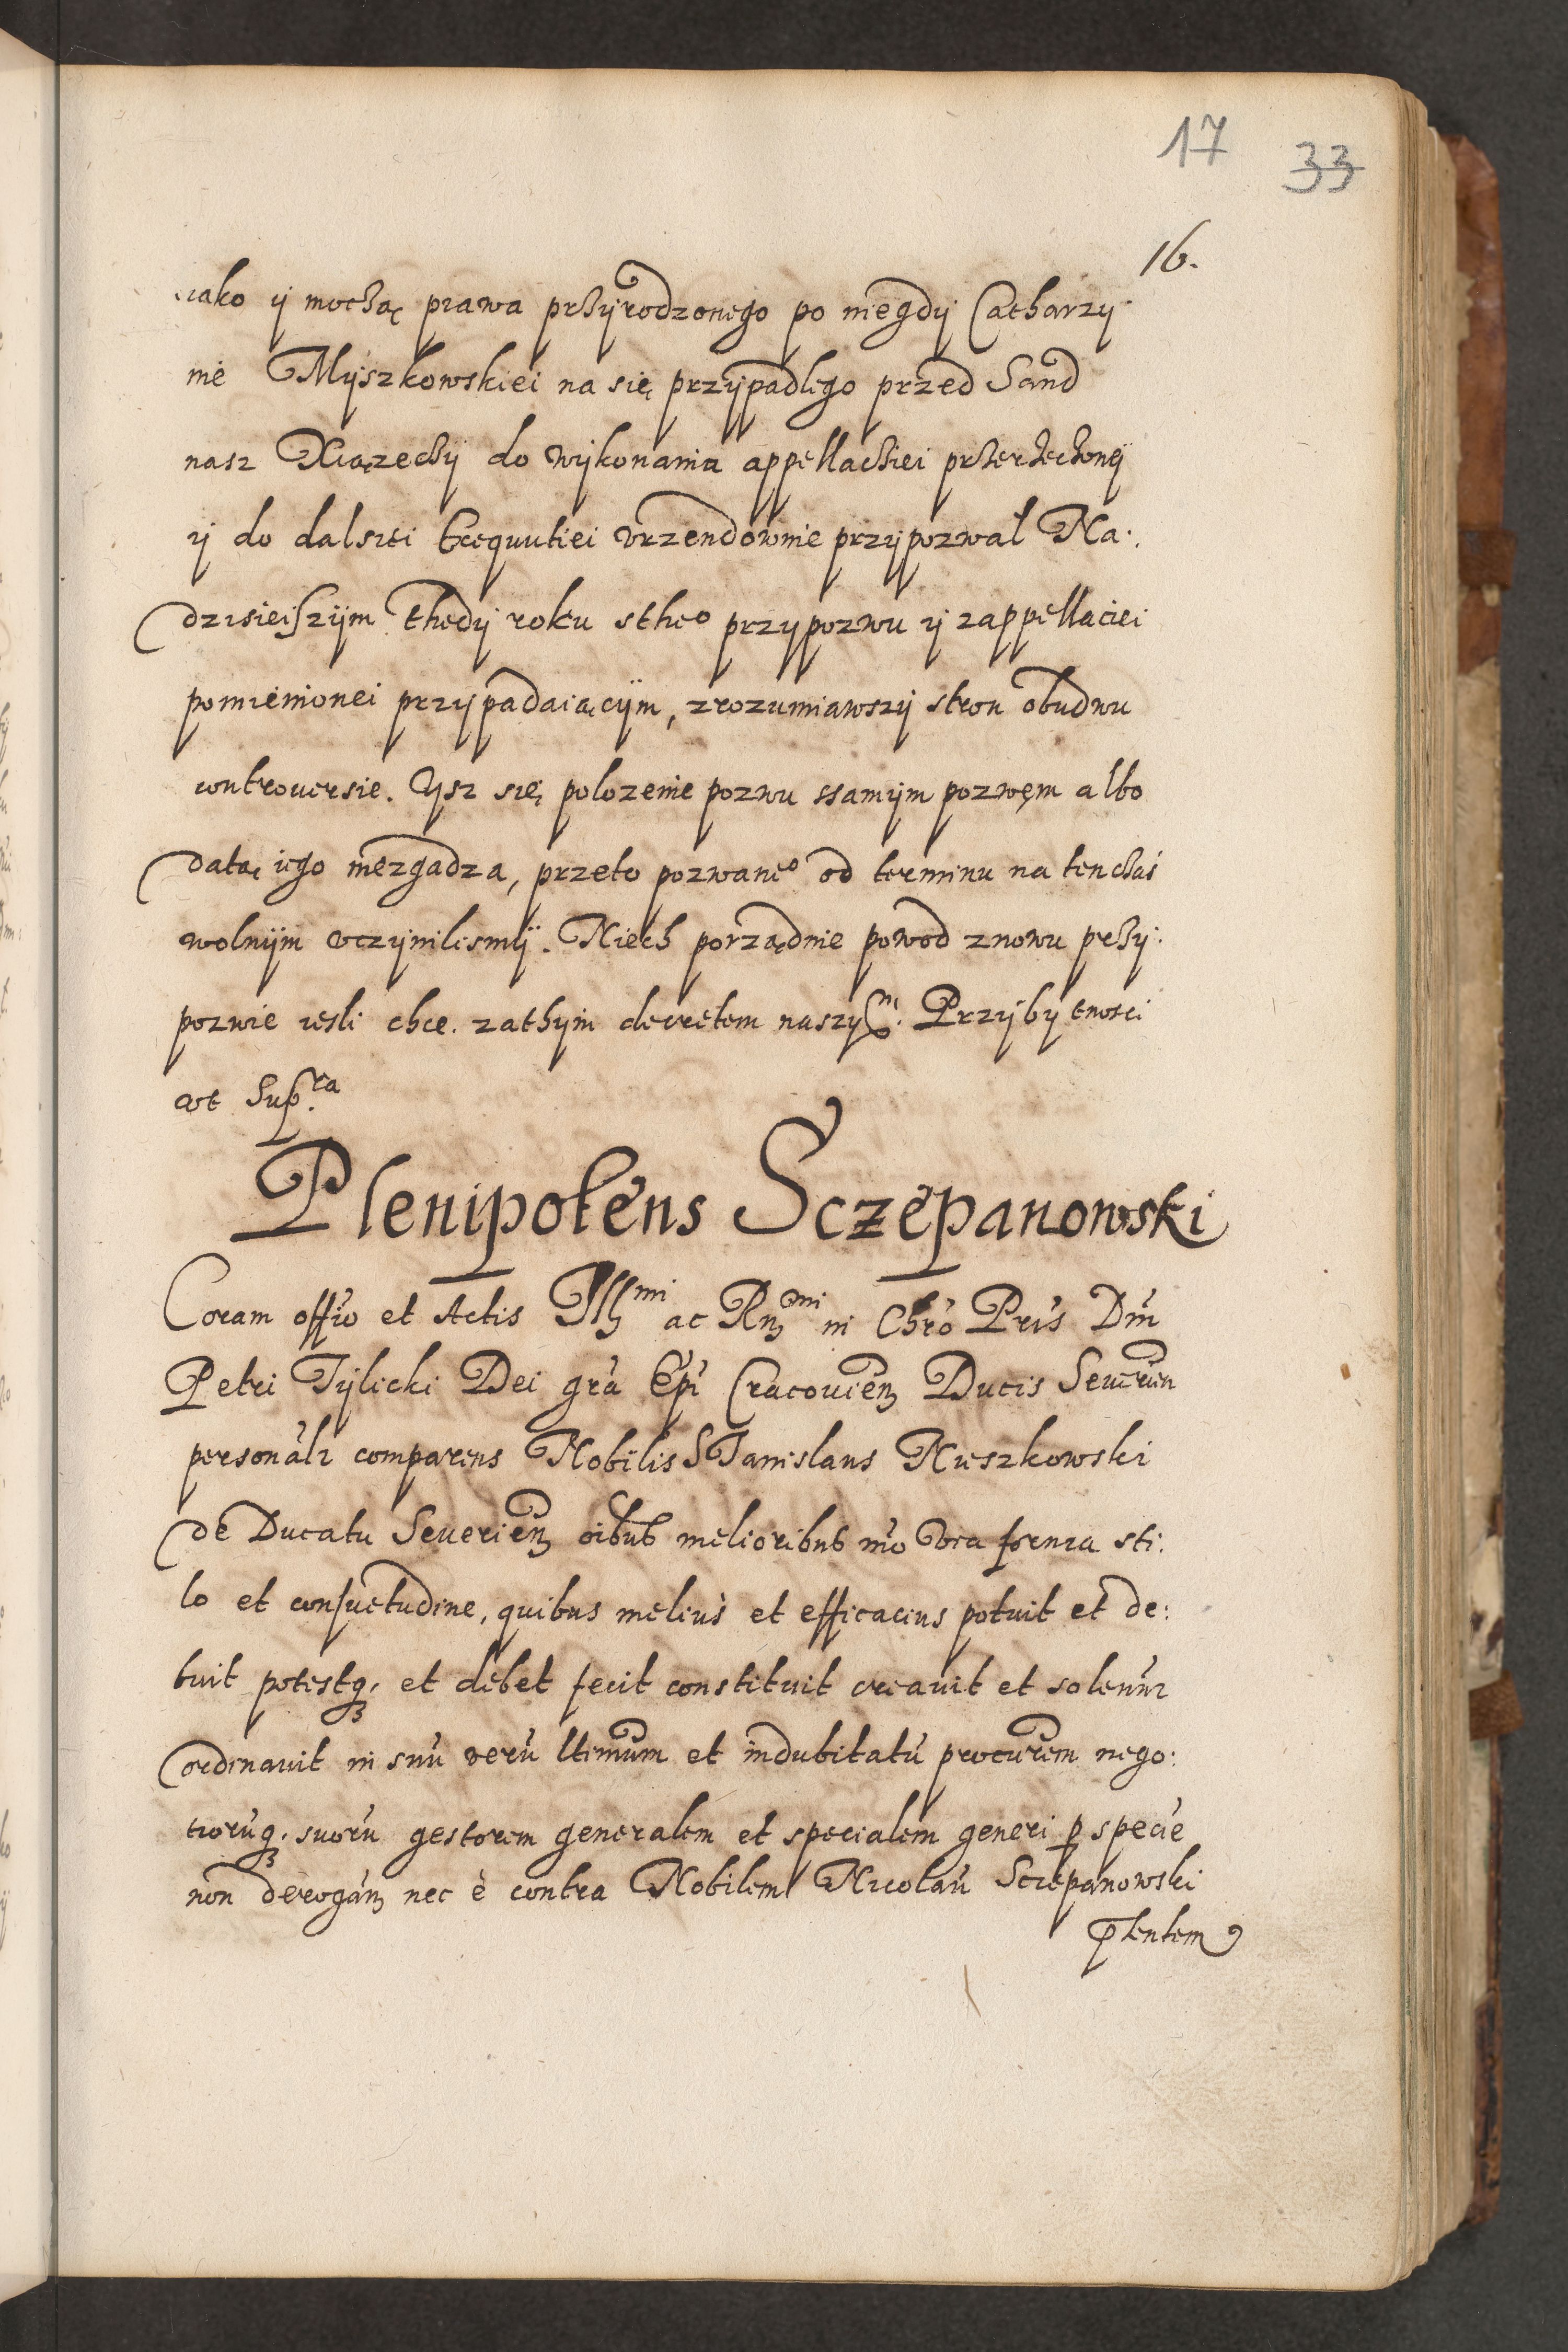 17 33
16.
iako ÿ mocżą prawa prżyrodzonego po niegdÿ Catharzÿ
nie Mÿszkowskiei na się przÿpadlego przed Sand
nasz Xiązecżÿ do wÿkonania appellacżiei prżerżecżonеÿ
ÿ do dalszei Exequutiei vrzendownie przÿpozwał Na.
dzisieiszÿm thedÿ roku stheo przÿpozwu ÿ zappellaciei
pomienionei przÿpadaiącÿm, zrozumiawszÿ stron obudwu
controuersie. Ysz się polozenie pozwu ssamÿm pozwęm albo
datą iego niezgadza, przeto pozwaneo od terminu na tencżas
wolnÿm vczÿnilismÿ. Niech porządnie powod znowu prżÿ.
pozwie iesli chce. zathÿm decretem naszÿm. Przÿbÿtnosci
vt Supra
Plenipotens Sczepanowski
Coram offio et Actis Illmi ac Rmi in Chro Pris Dni
Petri Tÿlicki Dei gra Epi Cracovien Ducis Severien
personalr comparens Nobilis Stanislaus Mieszkowski
de Ducatu Severien oibus melioribus mo via forma sti:
lo et consuetudine, quibus melius et efficacius potuit et de:
buit potestq; et debet fecit constituit creauit et solennr
ordinauit in suu veru ltimum et indubitatu procurem nego:
tioruq; suoru gestorem generalem et specialem generi p specie
non derogan nec e contra Nobilem Nicolau Sczepanowski
pntentem